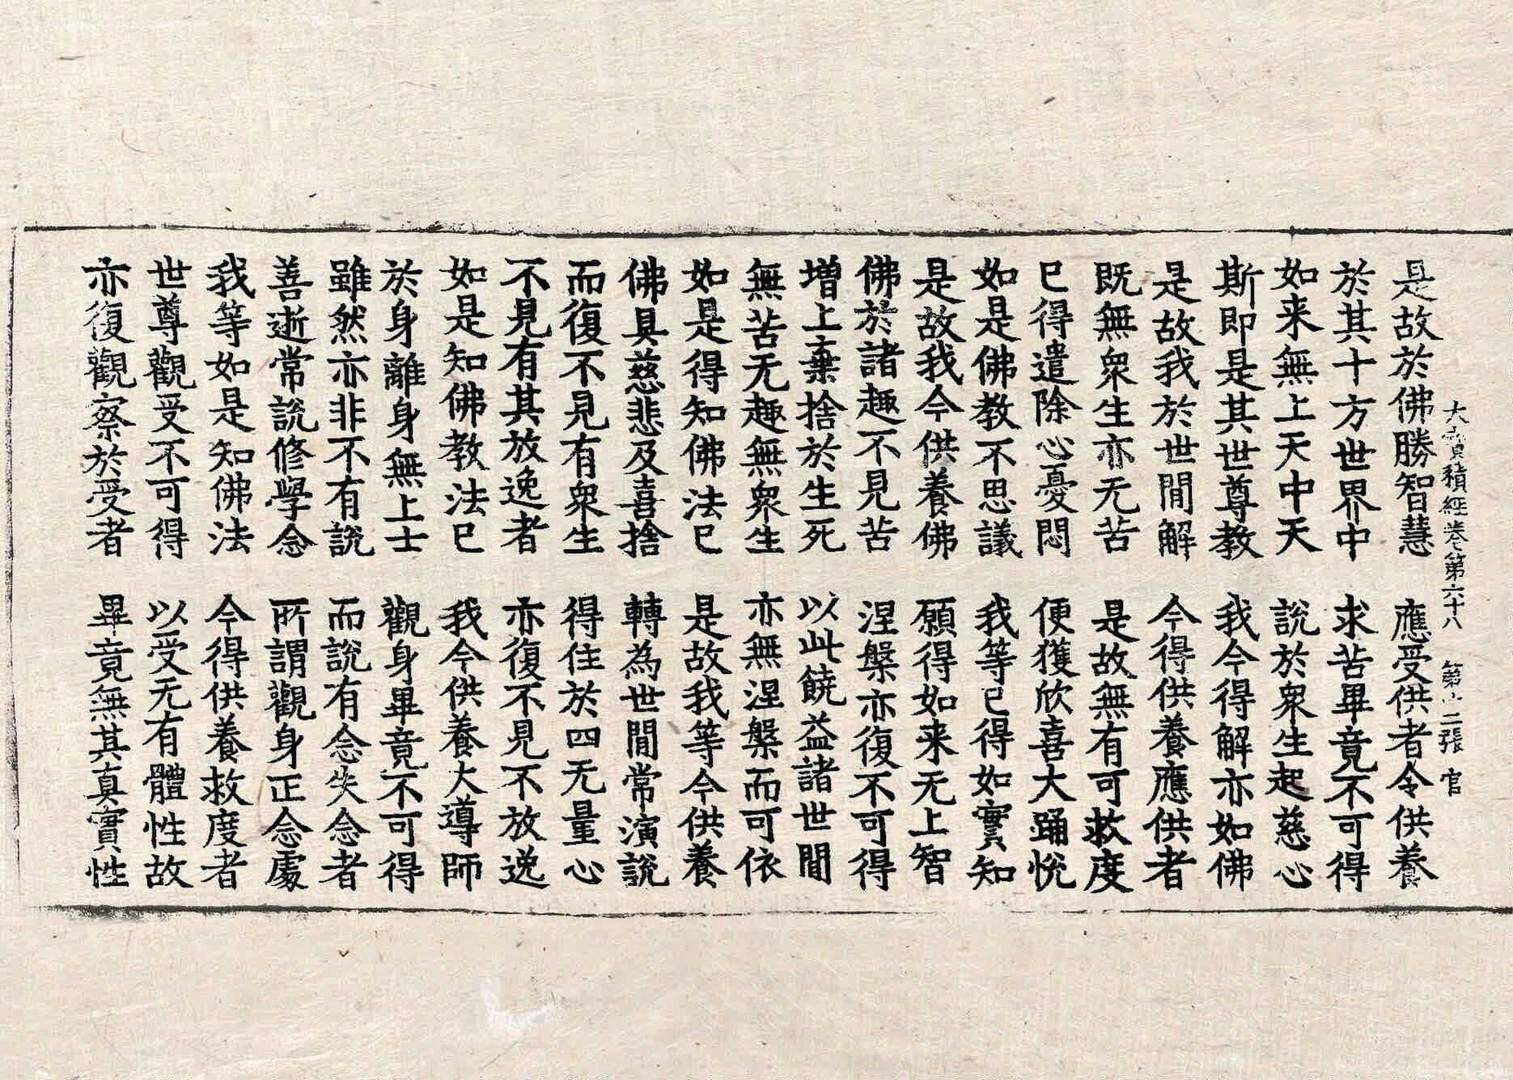 大寶積經卷第六十八 第十二張 官
是故於佛勝智慧 應受供者令供養
於其十方世界中 求苦畢竟不可得
如来無上天中天 說於衆生起慈心
斯即是其世尊教 我今得解亦如佛
是故我於世間解 今得供養應供者
既無衆生亦无苦 是故無有可救度
已得遣除心憂悶 便獲欣喜大踊悅
如是佛教不思議 我等已得如實知
是故我今供養佛 願得如来无上智
佛於諸趣不見苦 涅槃亦復不可得
增上棄捨於生死 以此饒益諸世間
無苦无趣無衆生 亦無涅槃而可依
如是得知佛法已 是故我等今供養
佛具慈悲及喜捨 轉為世間常演說
而復不見有衆生 得住於四无量心
不見有其放逸者 亦復不見不放逸
如是知佛教法已 我今供養大導師
於身離身無上士 觀身畢竟不可得
雖然亦非不有說 而說有念失念者
善逝常說修學念 所謂觀身正念處
我等如是知佛法 今得供養救度者
世尊觀受不可得 以受无有體性故
亦復觀察於受者 畢竟無其真實性